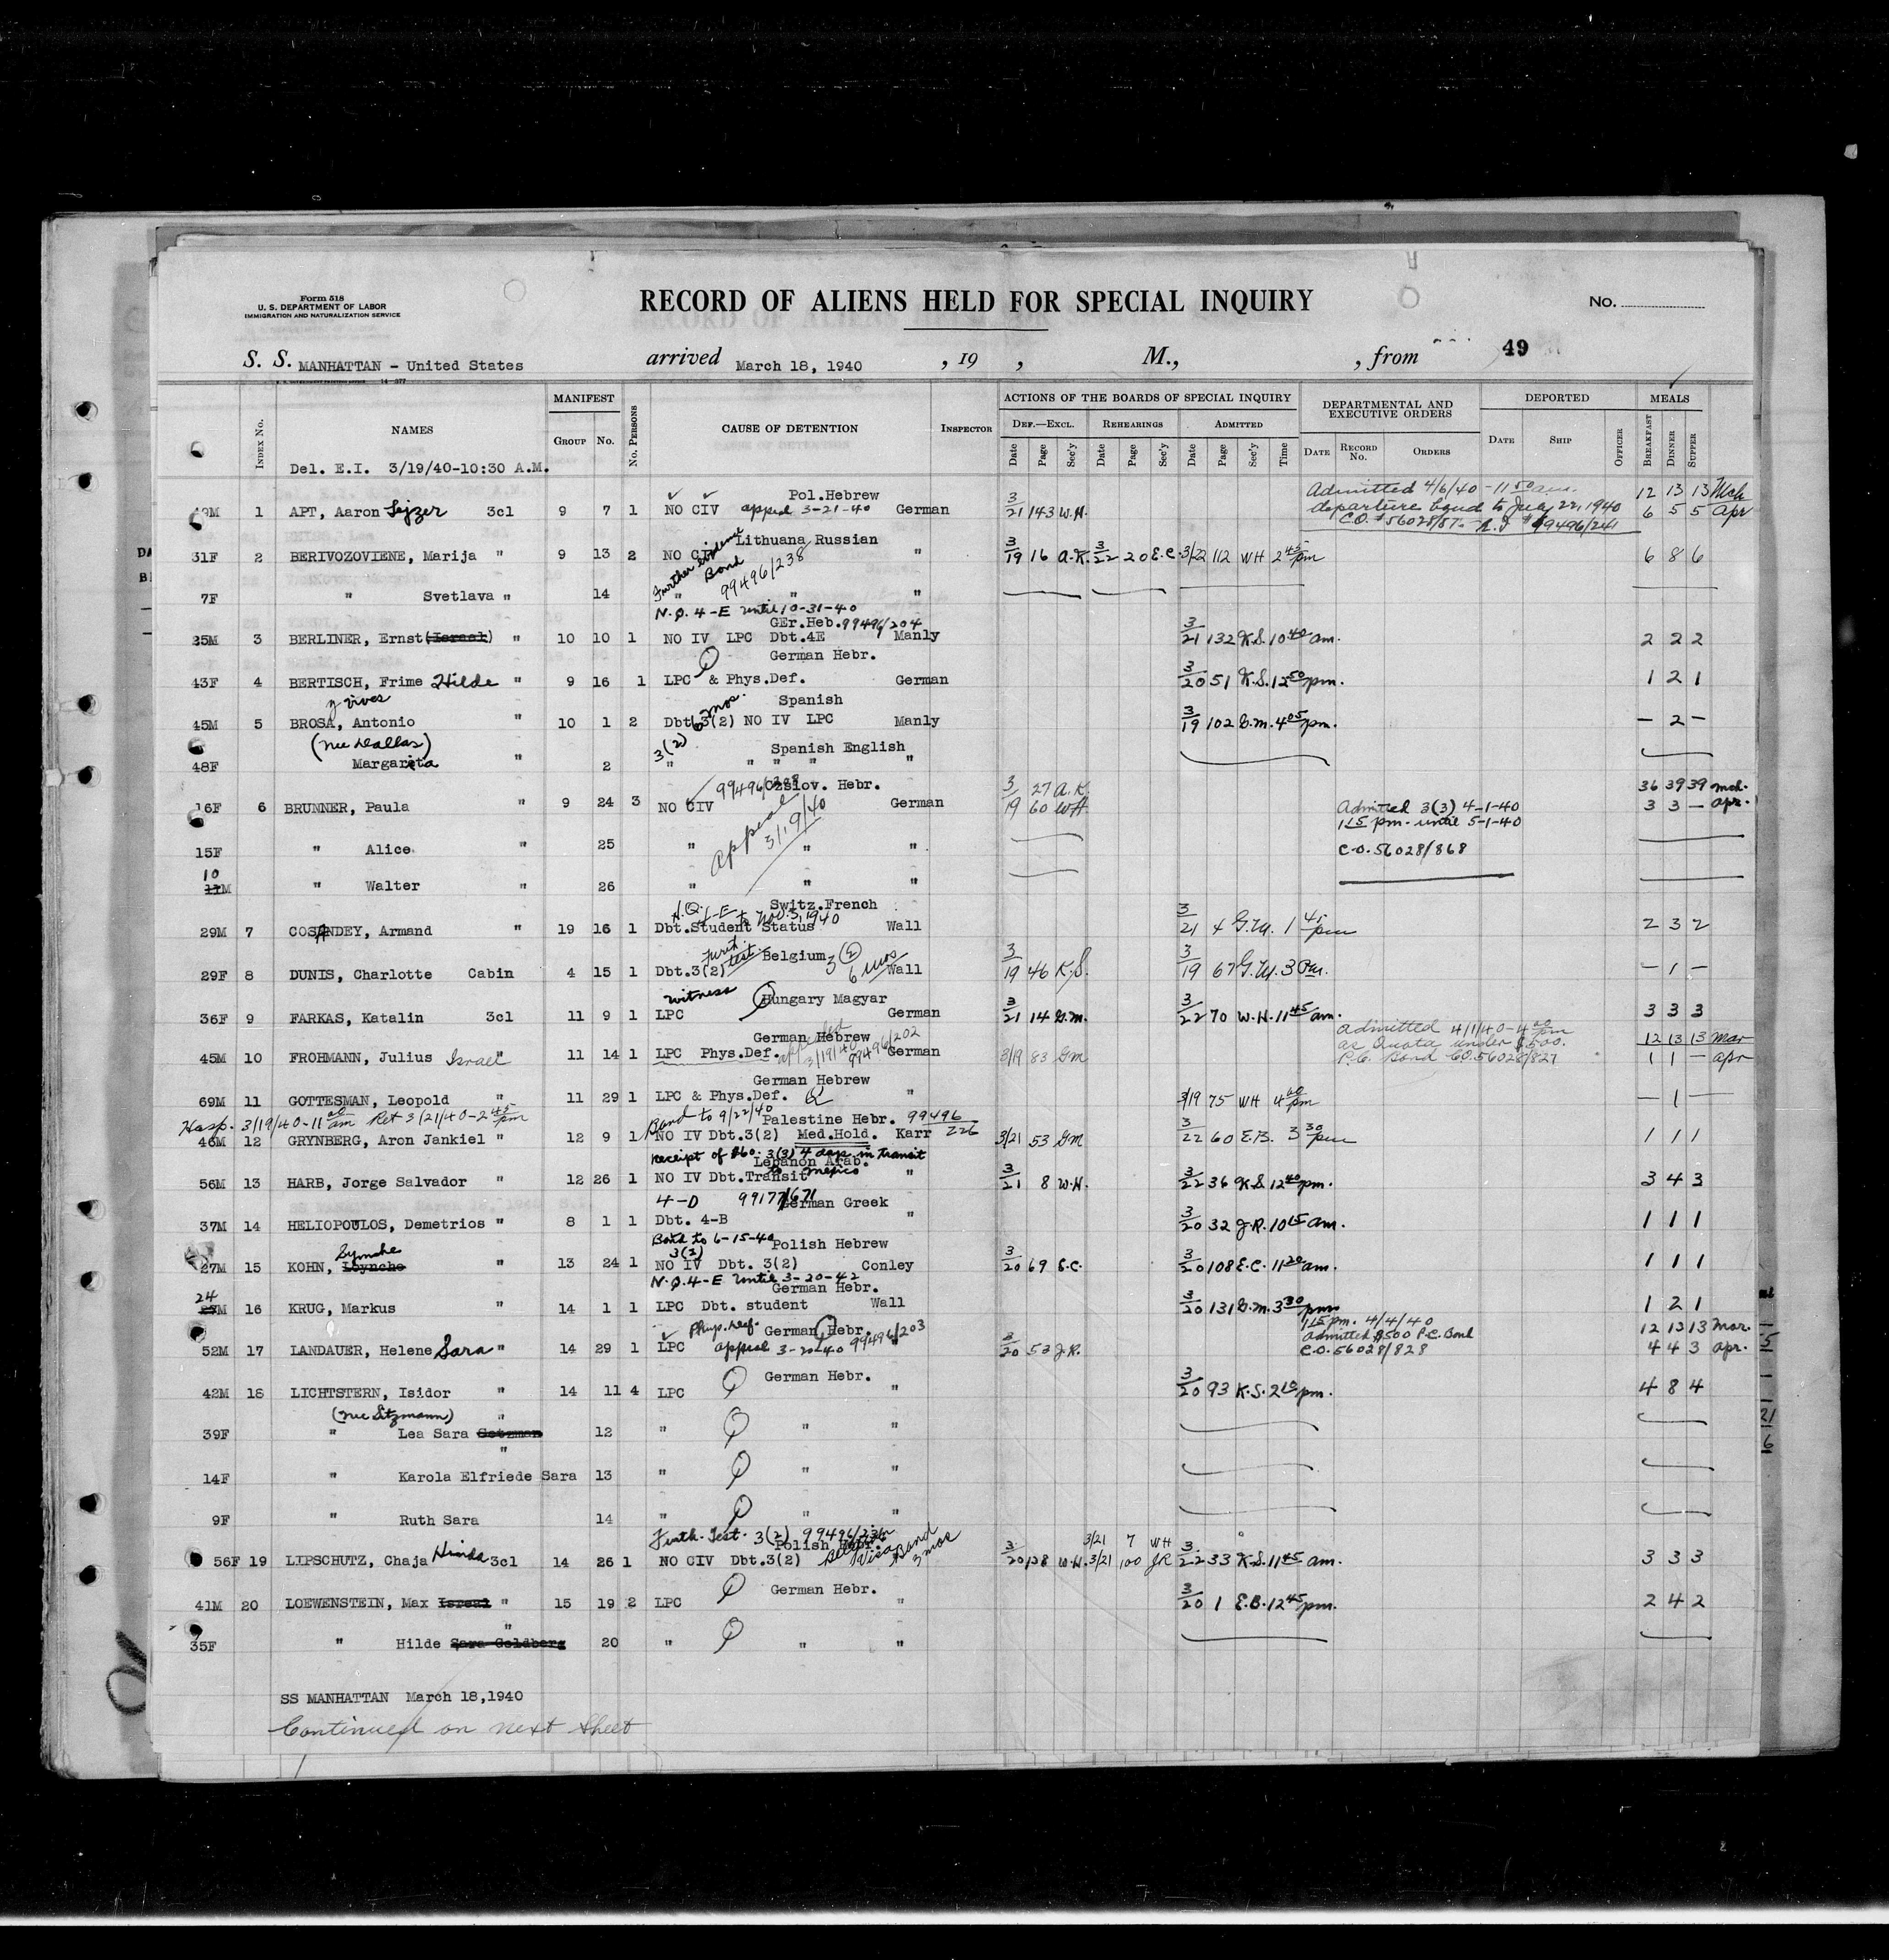 Form 518
U. S. DEPARTMENT OF LABOR
IMMIGRATION AND NATURALIZATION SERVICE
RECORD OF ALIENS HELD FOR SPECIAL INQUIRY
No.
S. S. MANHATTAN - United States arrived March 18, 1940 , 19 , M., , from 49
14-377
INDEX No. NAMES MANIFEST GROUP No. No. PERSONS CAUSE OF DETENTION INSPECTOR
ACTIONS OF THE BOARDS OF SPECIAL INQUIRY DEPARTMENTAL AND EXECUTIVE ORDERS DEPORTED MEALS
DEF.—EXCL. REHEARINGS ADMITTED
Date Page Sec'y Date Page Sec'y Date Page Sec'y Time DATE RECORD No. ORDERS DATE SHIP OFFICER BREAKFAST DINNER SUPPER
Del. E.I. 3/19/40-10:30 A.M.
Pol.Hebrew Admitted 4/6/40 - 11 50 am. 12 13 13 Mch
1 APT, Aaron Lejzer 3cl 9 7 1 NO CIV appeal 3-21-40 German 3/21 143 W.H. departure bond to July 22, 1940 6 5 5 Apr
C.O. # 56028/87
Lithuana Russian
31F 2 BERIVOZOVIENE, Marija " 9 13 2 NO CIV " 3/19 16 A.K. 3/22 20 E.C. 3/22 112 WH 2 45 pm 6 8 6
Further evidence Bond 99496/238
7F " Svetlava " 14 " " "
N.Q. 4-E until 10-31-40
GEr.Heb. 99496/204
25M 3 BERLINER, Ernst (Israel) " 10 10 1 NO IV LPC Dbt.4E Manly 3/21 132 K.S. 10 40 am. 2 2 2
German Hebr.
43F 4 BERTISCH, Frime Hilde " 9 16 1 LPC & Phys.Def. German 3/20 51 K.S. 12 50 pm. 1 2 1
y vives 6 mos. Spanish
45M 5 BROSA, Antonio " 10 1 2 Dbt.3(2) NO IV LPC Manly 3/19 102 G.M. 4 05 pm. - 2 -
(nee Dallas) 3(2) Spanish English
48F Margarita " 2 " " " " "
99496/208 Czslov. Hebr. 3/19 27 A.K. 36 39 39 mch.
16F 6 BRUNNER, Paula " 9 24 3 NO CIV German 60 WH. Admitted 3(3) 4-1-40 3 3 - apr.
appeal 3/19/40 1 15 pm. until 5-1-40
15F " Alice " 25 " " " C.O. 56028/868
10
11M " Walter " 26 " " "
Switz.French
4-E to Nov. 3, 1940
29M 7 COSANDEY, Armand " 19 16 1 Dbt.Student Status Wall 3/21 4 G.M. 1 45 pm 2 3 2
Furth. test. Belgium 3(2) 6 mos
29F 8 DUNIS, Charlotte Cabin 4 15 1 Dbt.3(2) Wall 3/19 46 K.S. 3/19 67 G.M. 3 Pm. - 1 -
witness Hungary Magyar
36F 9 FARKAS, Katalin 3cl 11 9 1 LPC German 3/21 14 G.M. 3/22 70 W.H. 11 45 am. 3 3 3
German Hebrew Admitted 4/1/40-4 20 pm
appealed 3/19/40 99496/202 as Quota under $500.
45M 10 FROHMANN, Julius Israel " 11 14 1 LPC Phys.Def. German 3/19 83 GM P.C. Bond CO.56028/827 12 13 13 Mar
1 1 - apr
German Hebrew
69M 11 GOTTESMAN, Leopold " 11 29 1 LPC & Phys.Def. " 3/19 75 WH 4 20 pm - 1 -
Hosp. 3/19/40-11 20 am Ret 3/21/40-2 45 pm Bond to 9/22/40 Palestine Hebr. 99496/226
46M 12 GRYNBERG, Aron Jankiel " 12 9 1 NO IV Dbt.3(2) Med.Hold. Karr 3/21 53 GM 3/22 60 E.B. 3 30 pm 1 1 1
Receipt of $60. 3(3) 4 days in transit to mexico
Lebanon Arab.
56M 13 HARB, Jorge Salvador " 12 26 1 NO IV Dbt.Transit " 3/21 8 W.H. 3/22 36 K.S. 12 40 pm. 3 4 3
4-D 99177/671 German Greek
37M 14 HELIOPOULOS, Demetrios " 8 1 1 Dbt. 4-B " 3/20 32 J.R. 10 15 am. 1 1 1
Bond to 6-15-40 3(2) Polish Hebrew
27M 15 KOHN, Symche " 13 24 1 NO IV Dbt. 3(2) Conley 3/20 69 E.C. 3/20 108 E.C. 11 20 am. 1 1 1
N.Q. 4-E until 3-20-42
German Hebr.
24
16 KRUG, Markus " 14 1 1 LPC Dbt. student Wall 3/20 131 G.M. 3 30 pm 1 2 1
Phys. def. German Hebr. 1 15 pm. 4/4/40 12 13 13 mar.
52M 17 LANDAUER, Helene Sara " 14 29 1 LPC appeal 3-20-40 99496/203 " 3/20 52 J.R. Admitted $500 P.C. Bond 4 4 3 apr.
C.O. 56028/828
German Hebr.
42M 18 LICHTSTERN, Isidor " 14 11 4 LPC " 3/20 93 K.S. 2 10 pm. 4 8 4
(nee Sitzmann) "
39F " Lea Sara Gotzman 12 " " "
"
14F " Karola Elfriede Sara 13 " " "
9F " Ruth Sara 14 " " "
Furth. Test. 3(2) Polish Hebr. Visa Bond 3 mos 3/21 7 WH
56F 19 LIPSCHUTZ, Chaja Hinda 3cl 14 26 1 NO CIV Dbt.3(2) 3/20 128 W.H. 3/21 100 JR 3/22 33 K.S. 11 45 am. 3 3 3
German Hebr.
41M 20 LOEWENSTEIN, Max Israel " 15 19 2 LPC " 3/20 1 E.B. 12 45 pm. 2 4 2
"
35F " Hilde Sara Goldberg 20 " " "
SS MANHATTAN March 18,1940
Continued on next sheet